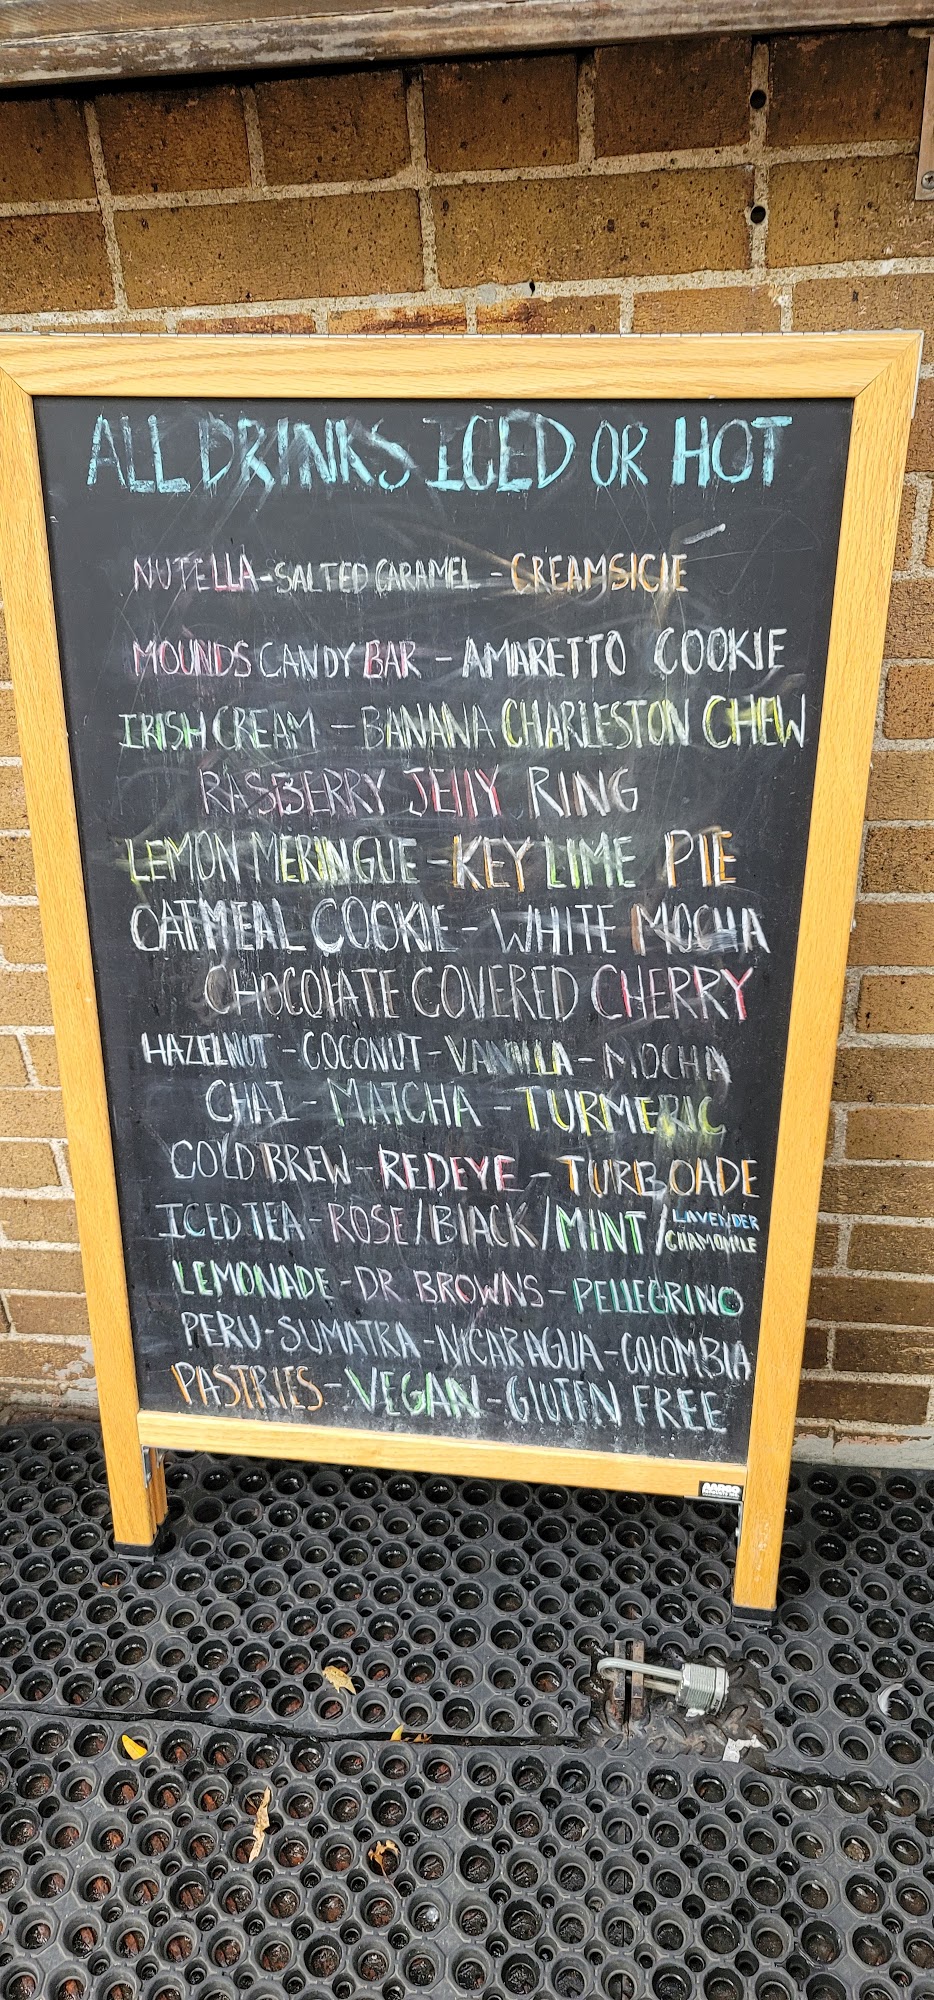 ALL DRINKS ICED OR HOT
NUTELLA-SALTED CARAMEL - CREAMSICLE
MOUNDS CANDY BAR - AMARETTO COOKIE
IRISH CREAM - BANANA CHARLESTON CHEW
RASBERRY JELLY RING
LEMON MERINGUE - KEY LIME PIE
OATMEAL COOKIE - WHITE MOCHA
CHOCOLATE COVERED CHERRY
HAZELNUT - COCONUT - VANILLA - MOCHA
CHAI - MATCHA - TURMERIC
COLD BREW - REDEYE - TURBOADE
ICED TEA - ROSE/BLACK/MINT/LAVENDER CHAMOMILE
LEMONADE - DR BROWNS - PELLEGRINO
PERU - SUMATRA - NICARAGUA - COLOMBIA
PASTRIES - VEGAN - GLUTEN FREE
AARCO